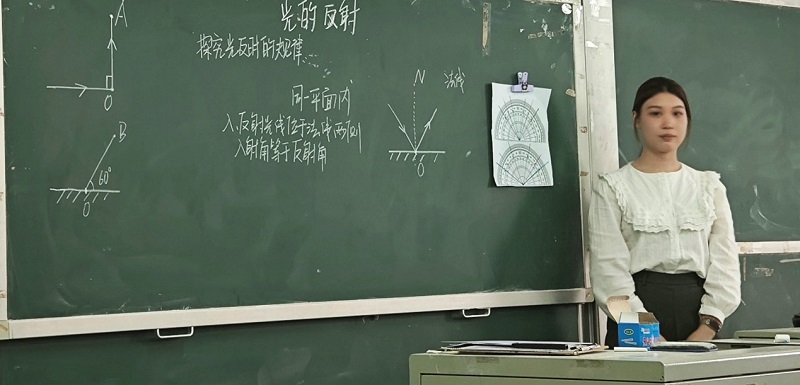 光的反射
探究光反射的规律
A
O
B
60°
O
同一平面内
入、反射光线位于法线两侧
入射角等于反射角
N
法线
O